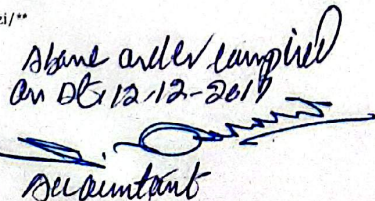 zi/**
Above order complied
on Dt. 12-12-2017
Accountant